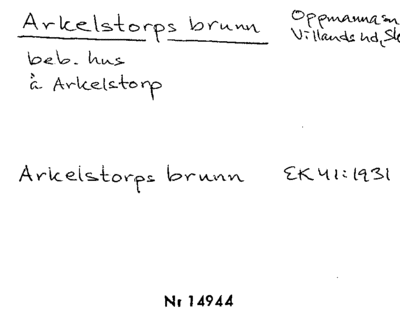 Arkelstorps brunn
Oppmanna sn
Villands hd, Sk
beb. hus
å Arkelstorp
Arkelstorps brunn EK 41:1931
Nr 14944